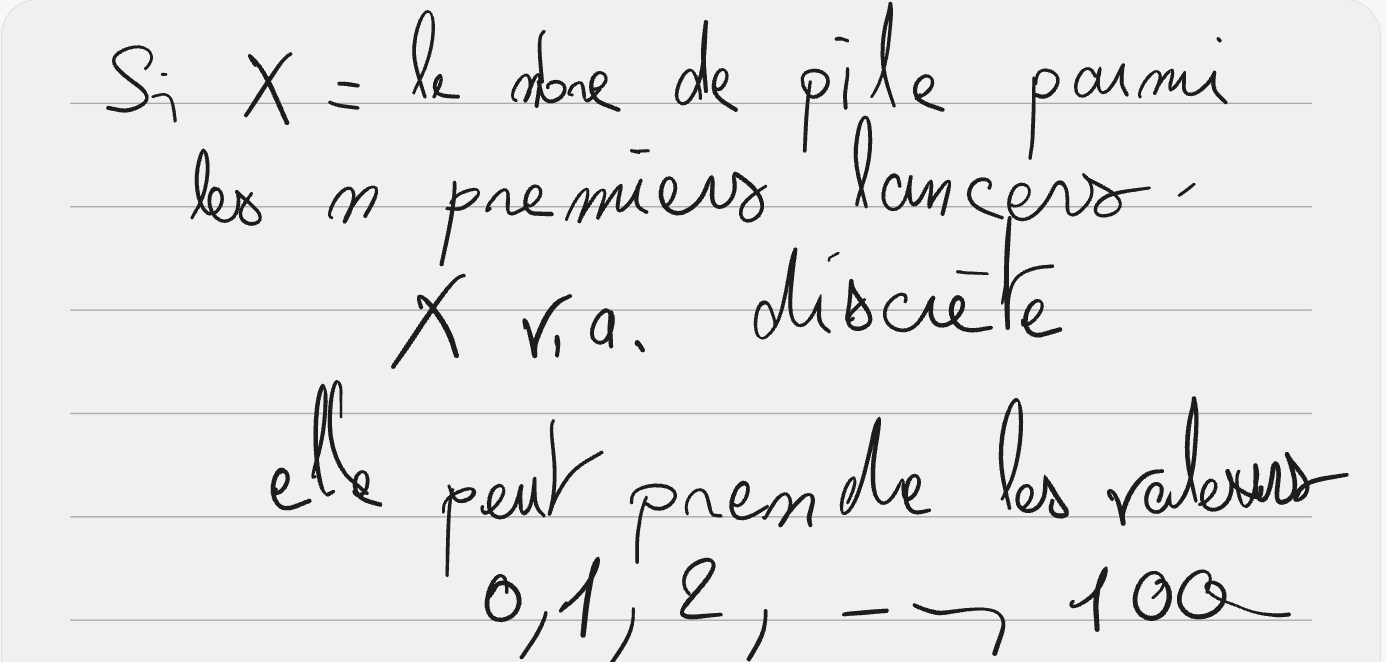 Si X = le nbre de pile parmi
les n premiers lancers.
X v.a. discrète
elle peut prendre les valeurs
0, 1, 2, ---, 100